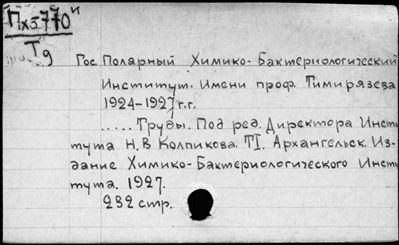 Пхз770и
Тg
Гос. Полярный Химико-Бактериологический
Институт. Имени проф. Тимирязева
1924-1927 г.г.
..... Труды. Под ред. Директора Инсти
тута Н.В. Колпикова. TI. Архангельск. Из-
дание Химико-Бактериологического Инсти
тута. 1927.
232 стр.